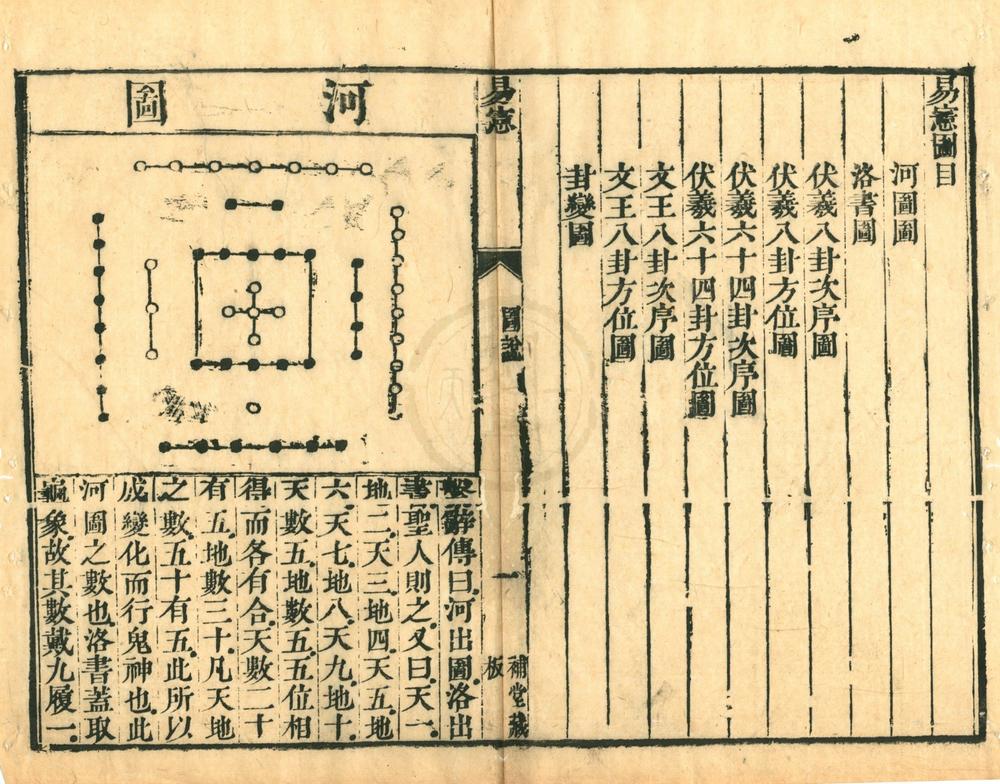 易憲圖目
河圖圖
洛書圖
伏羲八卦次序圖
伏羲八卦方位圖
伏羲六十四卦次序圖
伏羲六十四卦方位圖
文王八卦次序圖
文王八卦方位圖
卦變圖
易憲
圖說
一
補堂藏
板
河圖
繫辭傳曰河出圖洛出
書聖人則之又曰天一
地二天三地四天五地
六天七地八天九地十
天數五地數五五位相
得而各有合天數二十
有五地數三十凡天地
之數五十有五此所以
成變化而行鬼神也此
河圖之數也洛書蓋取
龜象故其數戴九履一